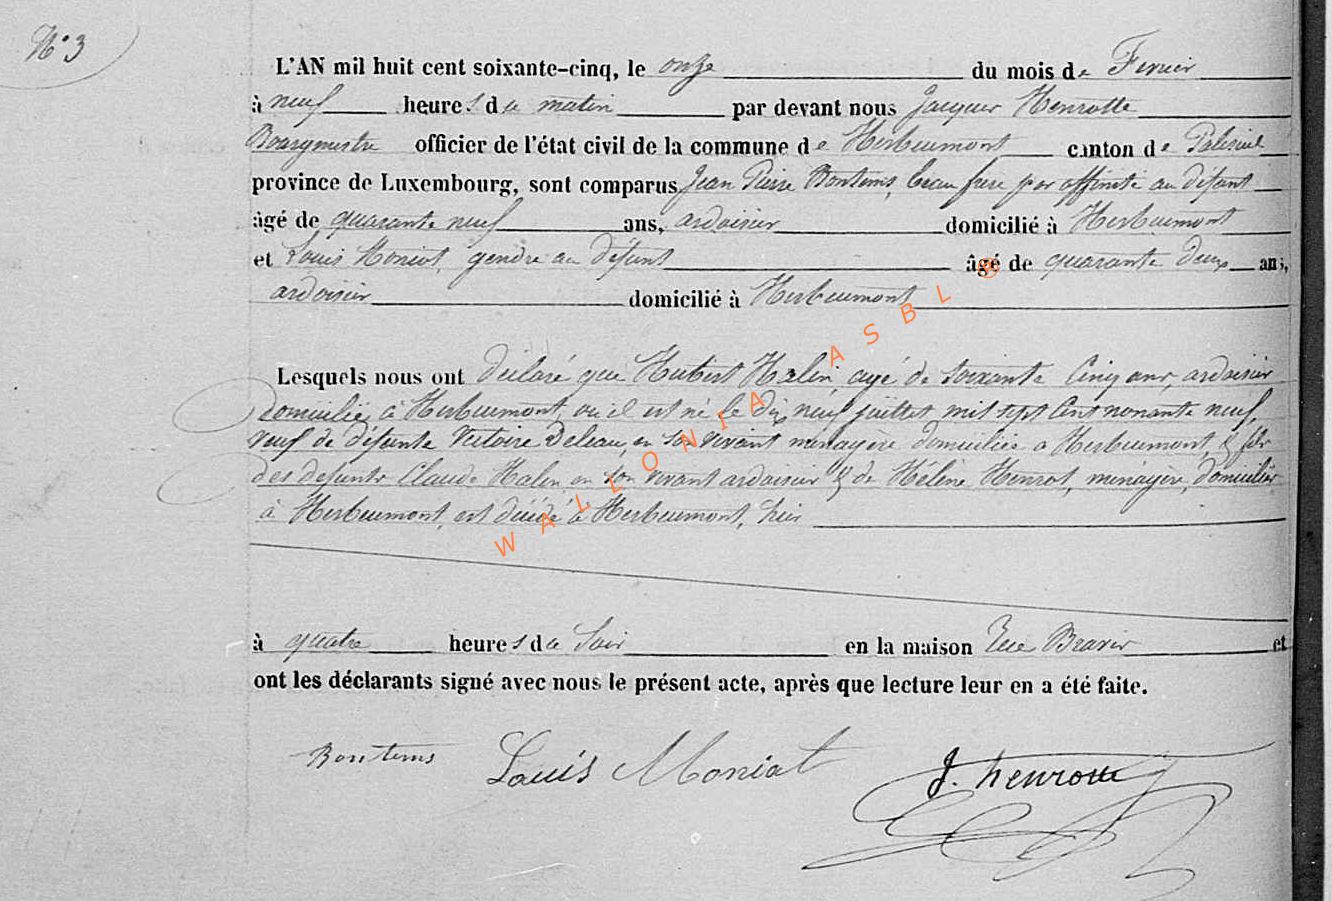 N° 3
L'AN mil huit cent soixante-cinq, le onze du mois de Fevrier
à neuf heures du matin par devant nous Jacques Henrotte
Bourgmestre officier de l'état civil de la commune de Herbeumont canton de Paliseul
province de Luxembourg, sont comparus Jean Pierre Bontems, beau frere par affinité au défunt
âgé de quarante neuf ans, ardoisier domicilié à Herbeumont
et Louis Moniot, gendre au défunt âgé de quarante deux ans,
ardoisier domicilié à Herbeumont
Lesquels nous ont déclaré que Hubert Halin, agé de soixante cinq ans, ardoisier
domicilié à Herbeumont, où il est né le dix neuf juillet mil sept cent nonante neuf,
veuf de défunte Victoire Deleau, en son vivant ménagère domiciliée a Herbeumont, & fils
des defunts Claude Halen en son vivant ardoisier & de Hélène Henrot, ménagère, domiciliés
à Herbeumont, est décédé à Herbeumont, hier
à quatre heures du soir en la maison Rue Bravir et
ont les déclarants signé avec nous le présent acte, après que lecture leur en a été faite.
Bontems Louis Moniot J. henrotte
WALLONIA ASBL ®